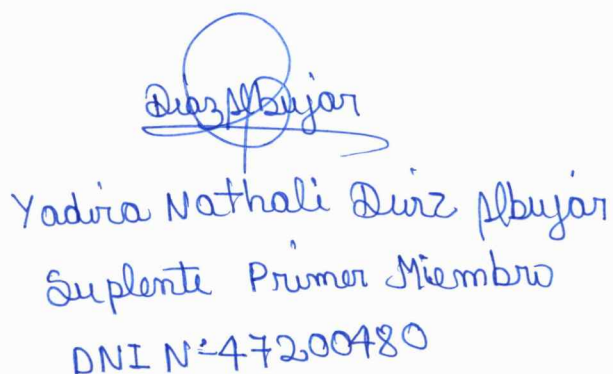 Diaz Albujar
Yadira Nathali Diaz Albujar
Suplente Primer Miembro
DNI Nº 47200480